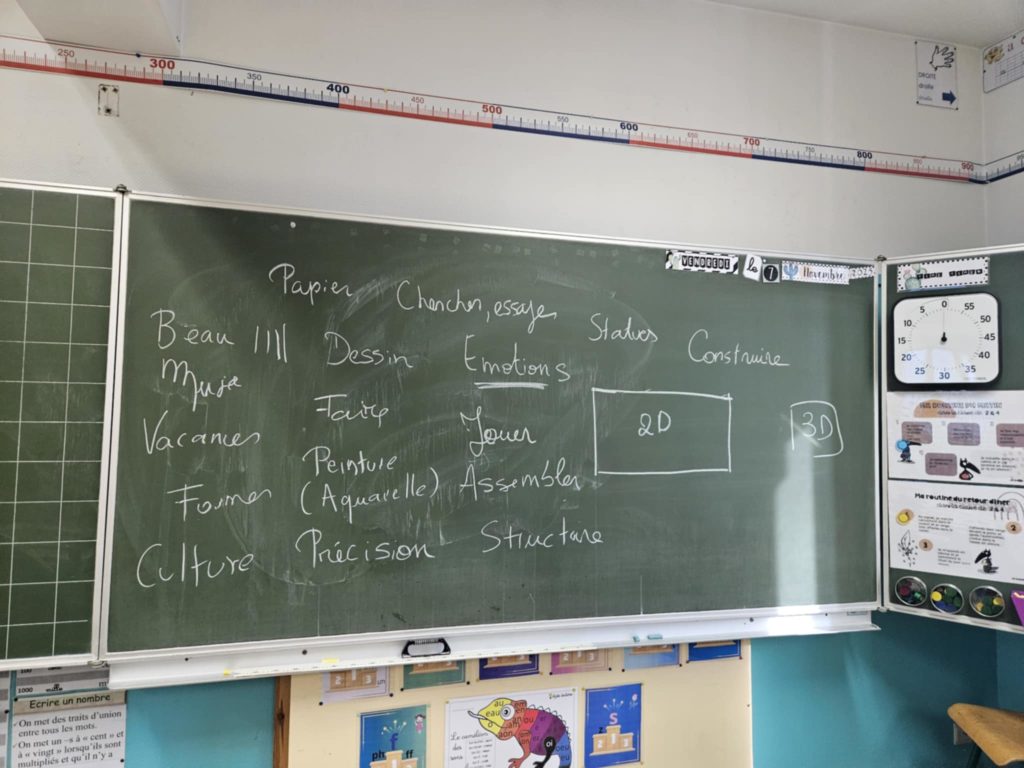 250 300 350 400 450 500 550 600 650 700 750 800 850 900
DROITE
droite
droite
VENDREDI le 7 Novembre
Papier
Chercher, essayer
Beau ||||
Dessin
Emotions
Statues
Construire
Faire
Jouer
2D
3D
Vacances
Peinture
Former
(Aquarelle)
Assembler
Culture
Précision
Structure
0 5 10 15 20 25 30 35 40 45 50 55
Ma routine du retour dîner
1000
Ecrire un nombre
- On met des traits d'union
entre tous les mots.
- On met un -s à « cent » et
à « vingt » lorsqu'ils sont
multipliés et qu'il n'y a
f
ph
ff
Le caméléon
des
au
eau
an
on
ou
oi
s